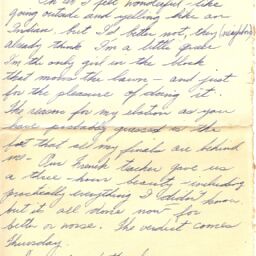 Oh do I feel wonderful - like
going outside and yelling like an
Indian, but I'd better not, they (neighbors)
already think I'm a little queer
I'm the only girl in the block
that mows the lawn - and just
for the pleasure of doing it.
The reason for my elation as you
have probably guessed is the
fact that all my finals are behind
me - Our French teacher gave us
a three-hour beauty including
practically everything I didn't know
but it all done now for
better or worse. The verdict comes
Thursday.